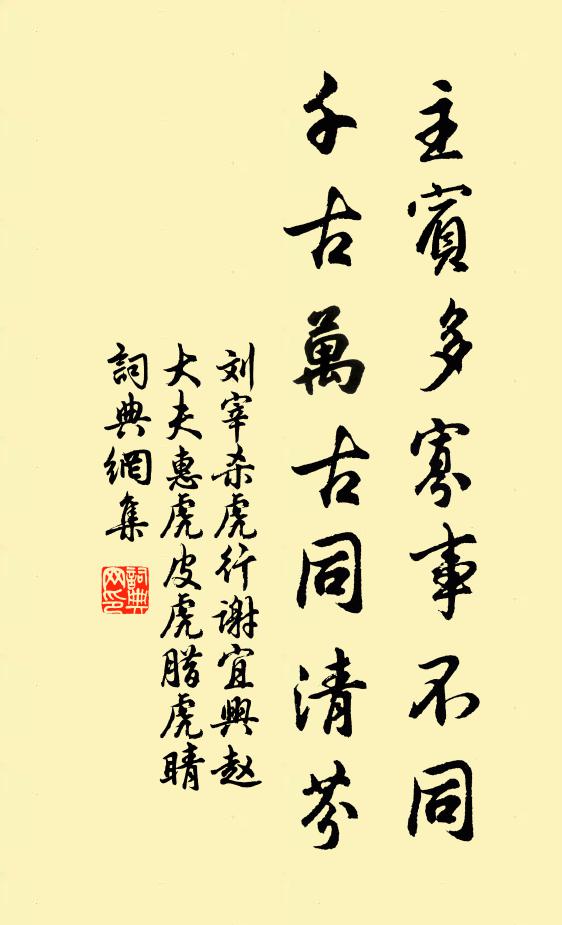 主賓多寡事不同
千古萬古同清芬
刘宰杀虎行谢宜興赵
大夫惠虎皮虎腊虎睛
詞典網集
詞典网印